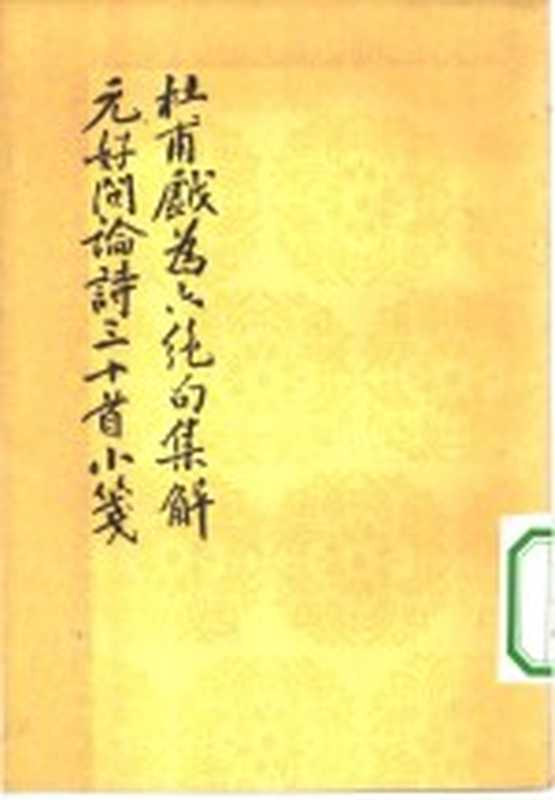 杜甫戲為六绝句集解
元好問論詩三十首小箋